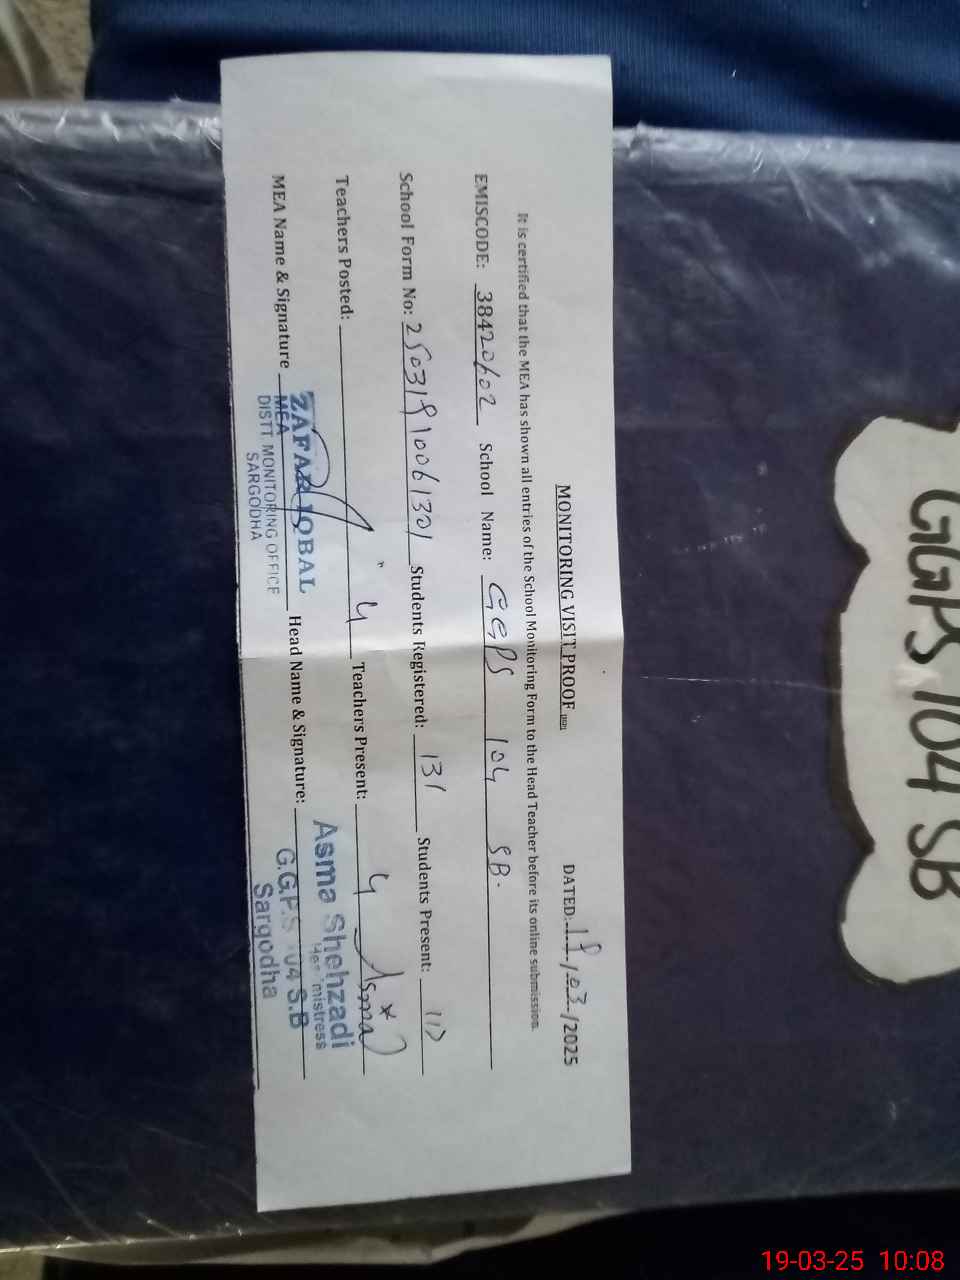 MONITORING VISIT PROOF DATED: 19/03/2025
It is certified that the MEA has shown all entries of the School Monitoring Form to the Head Teacher before its online submission.
EMISCODE: 38420602 School Name: GGPS 104 SB.
School Form No: 25031910061301 Students Registered: 131 Students Present:
Teachers Posted: 4 Teachers Present: 4 Asma
MEA Name & Signature ZAFAR IQBAL Head Name & Signature: Asma Shehzadi
MEA Headmistress
DISTT MONITORING OFFICE G.G.P.S 104 S.B
SARGODHA Sargodha
GGPS 104 SB
19-03-25 10:08